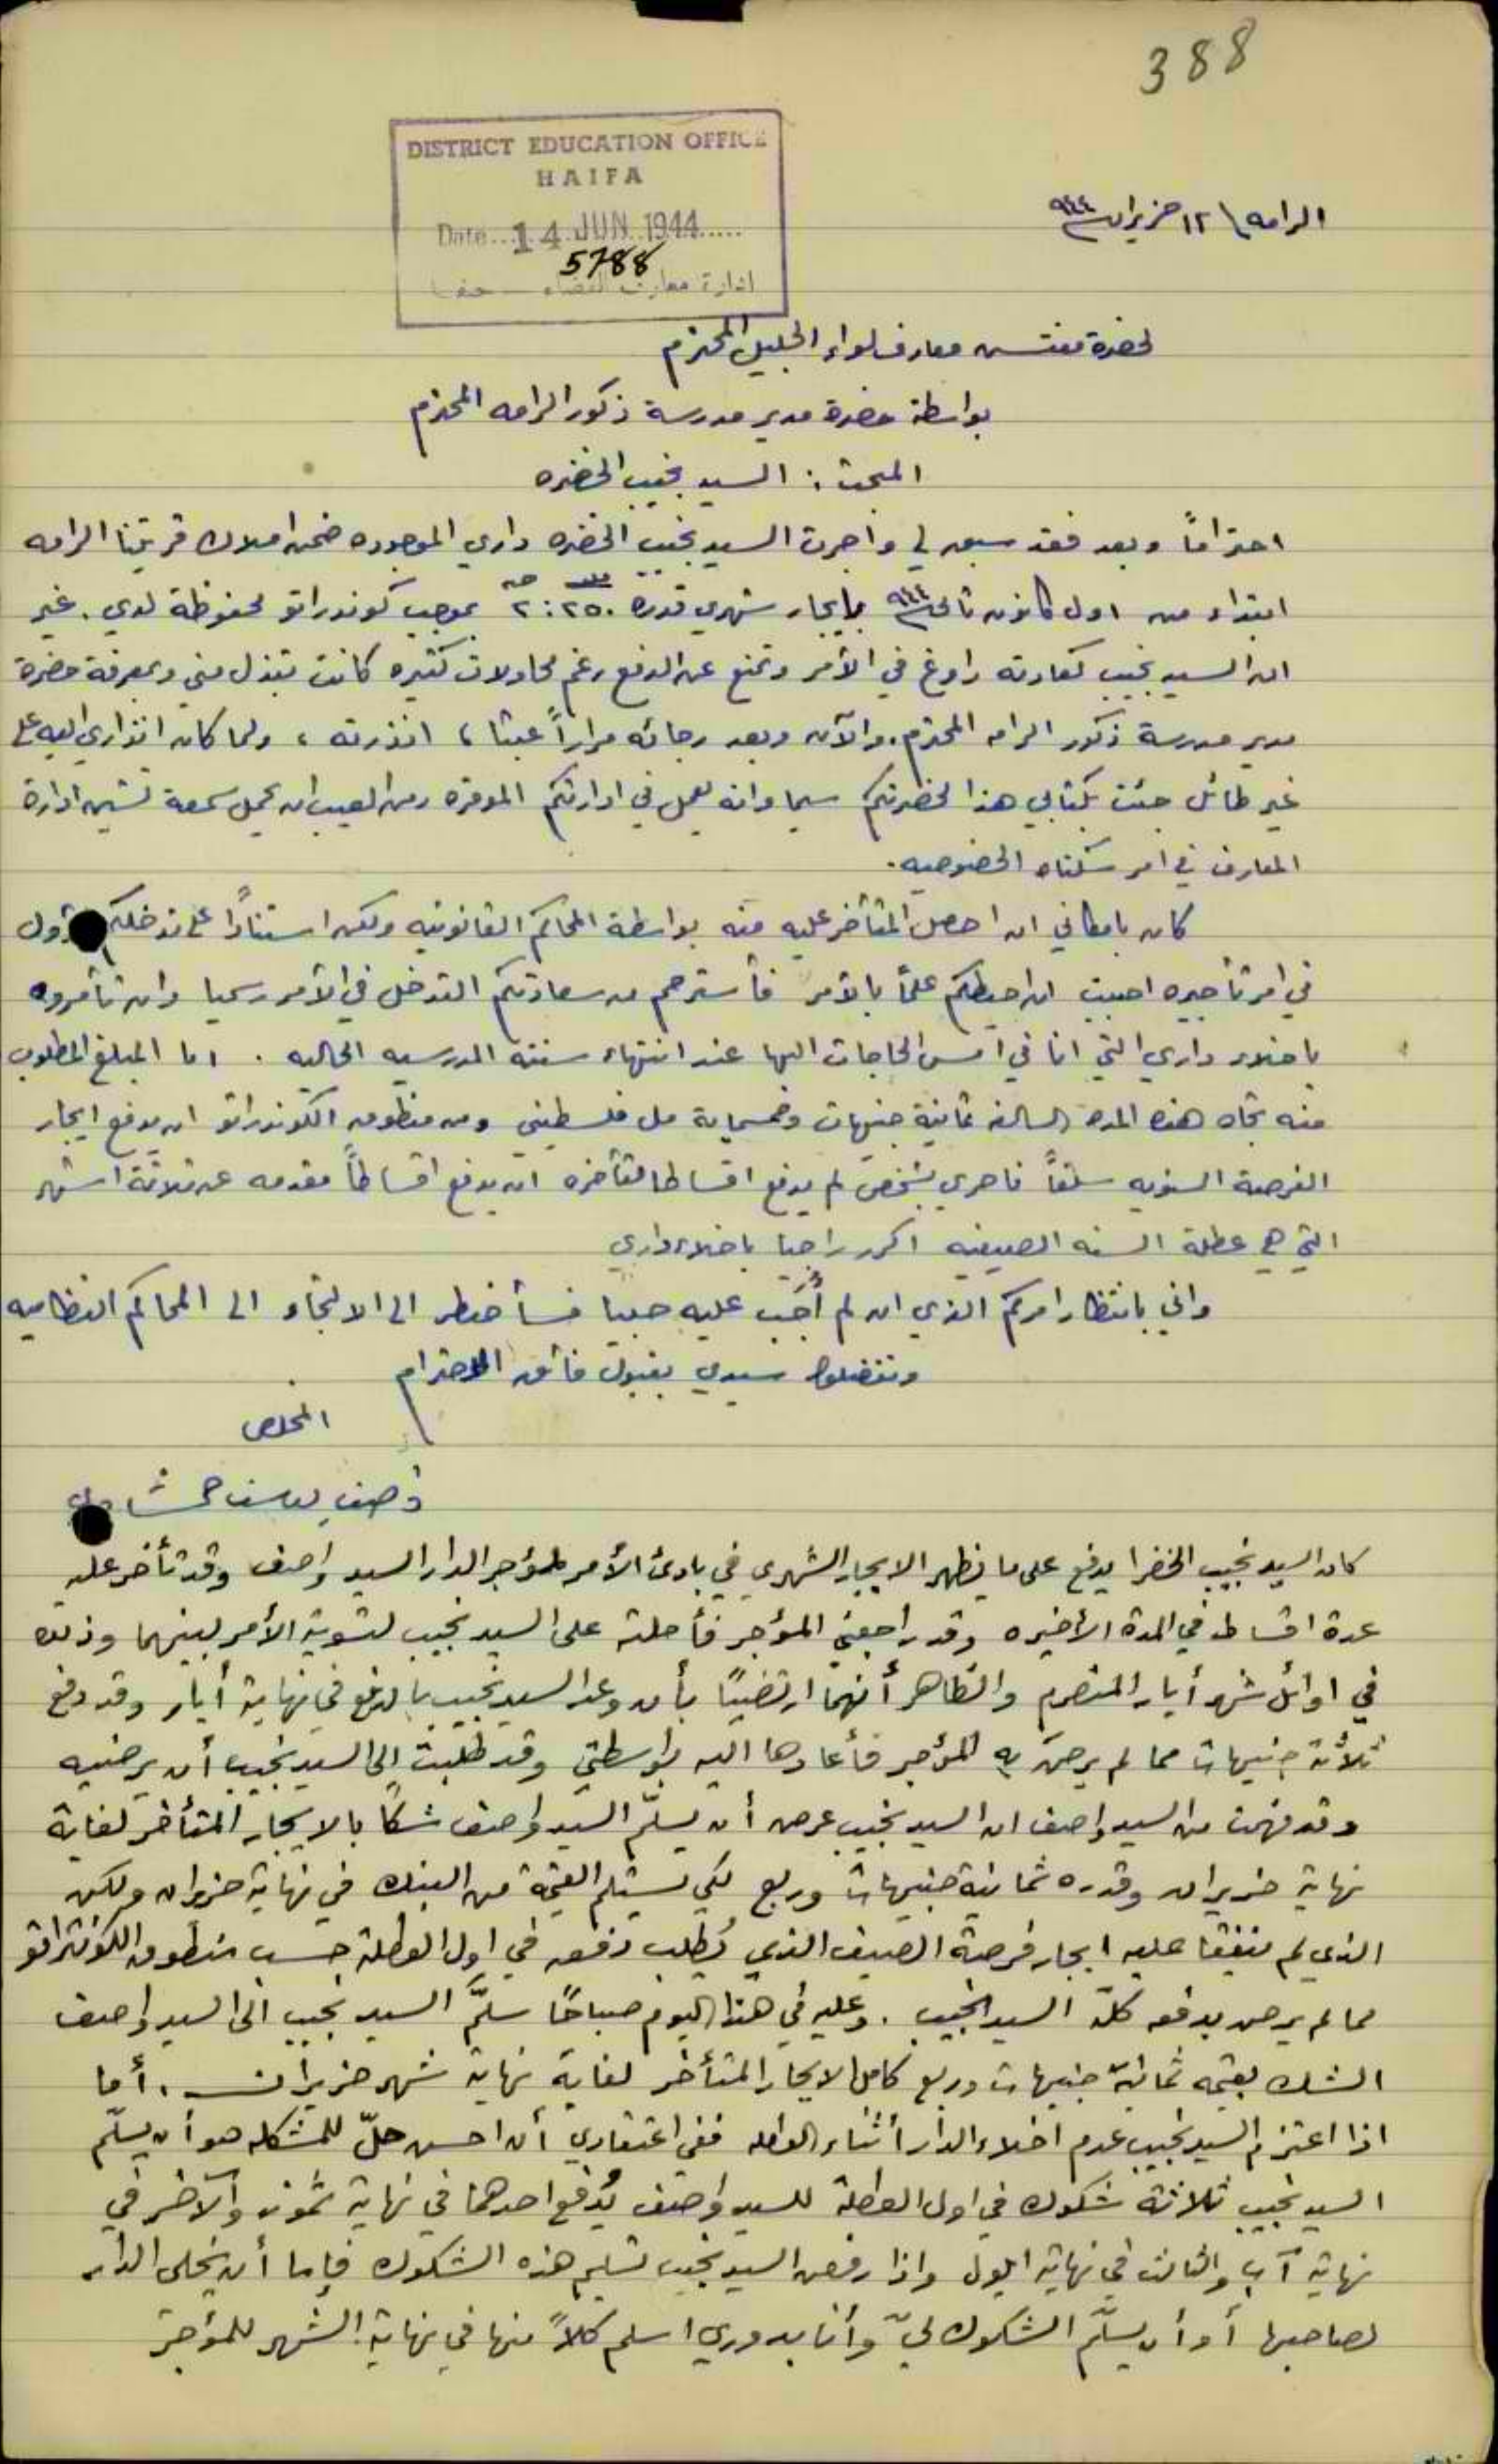 388
DISTRICT EDUCATION OFFICE
HAIFA
Date...14 JUN 1944.....
5788
ادارة معارف القضاء — حيفا
الرامه \ ١٢ حزيران ٩٤٤
لحضرة مفتش معارف لواء الجليل المحترم
بواسطة حضرة مدير مدرسة ذكور الرامه المحترم
المبحث : السيد نجيب الخضره
احتراماً وبعد فقد سبق لي واجرت السيد نجيب الخضره داري الموجوده ضمن املاك قريتنا الرامه
ابتداء من اول كانون ثاني ٩٤٤ بايجار شهري قدره ٢:٢٥٠ بموجب كوندراتو محفوظة لدي . غير
ان السيد نجيب كعادته راوغ في الأمر وتمنع عن الدفع رغم محاولات كثيره كانت تبذل مني وبمعرفة حضرة
مدير مدرسة ذكور الرامه المحترم. والآن وبعد رجائه مراراً عبثا ، انذرته ، ولما كان انذاري اليه على
غير طائل جئت بكتابي هذا لحضرتكم سيما وانه يعمل في ادارتكم الموقره ومن العيب ان يحمل سمعة تشين ادارة
المعارف في امر سكناه الخصوصيه .
كان بامكاني ان احصل المتأخر عليه منه بواسطة المحاكم القانونيه ولكن استناداً على تدخلكم
في امر تأجيره احببت ان احيطكم علماً بالأمر فأسترحم من سعادتكم التدخل في الأمر رسميا وان تأمروه
باخلاء داري التي انا في امس الحاجات اليها عند انتهاء سنته المدرسيه الحاليه . اما المبلغ المطلوب
منه تجاه هذه المده السالفه ثمانية جنيهات وخمسماية مل فلسطيني ومن منطوق الكوندراتو ان يدفع ايجار
الفرصة السنويه سلفاً فاحري بشخص لم يدفع اقساطا متأخره ان يدفع اقساطاً مقدمه عن ثلاثة اشهر
التي هي عطلة السنه الصيفيه اكرر راجيا باخلاء داري
واني بانتظار امركم الذي ان لم أُجَب عليه حبيا فسأضطر الى الالتجاء الى المحاكم النظاميه
وتفضلوا سيدي بقبول فائق الاحترام
المخلص
واصف يوسف
كان السيد نجيب الخضرا يدفع على ما يظهر الايجار الشهري في بادئ الأمر لمؤجر الدار السيد واصف وقد تأخر عليه
عدة اقساط في المدة الأخيره وقد راجعني المؤجر فأحلته على السيد نجيب لتسوية الأمر بينهما وذلك
في اوائل شهر أيار المنصرم والظاهر أنهما ارتضيا بأن وعد السيد نجيب بالدفع في نهاية أيار وقد دفع
ثلاثة جنيهات مما لم يرض به المؤجر فأعادها اليه بواسطتي وقد طلبت إلى السيد نجيب أن يرضيه
وقد فهمت من السيد واصف ان السيد نجيب عرض أن يسلّم السيد واصف شكاً بالايجار المتأخر لغاية
نهاية حزيران وقدره ثمانية جنيهات وربع لكي يستلم القيمة من البنك في نهاية حزيران ولكن
الذي لم يتفقا عليه ايجار فرصة الصيف الذي يُطلب دفعه في اول العطلة حسب منطوق الكونتراتو
مما لم يرض بدفعه كلّه السيد نجيب . وعليه في هذا اليوم صباحًا سلّم السيد نجيب الى السيد واصف
الشك بقيمة ثمانية جنيهات وربع كامل الايجار المتأخر لغاية نهاية شهر حزيران . أما
اذا اعتزم السيد نجيب عدم اخلاء الدار أثناء العطله ففي اعتقادي أن احسن حلّ للمشكله هو أن يسلّم
السيد نجيب ثلاثة شكوك في اول العطلة للسيد واصف يُدفع احدهما في نهاية تموز والآخر في
نهاية آب والثالث في نهاية ايلول واذا رفض السيد نجيب تسليم هذه الشكوك فإما أن يخلي الدار
لصاحبها أو أن يسلّم الشكوك ليّ وأنا بدوري اسلم كلاً منها في نهاية الشهر للمؤجر